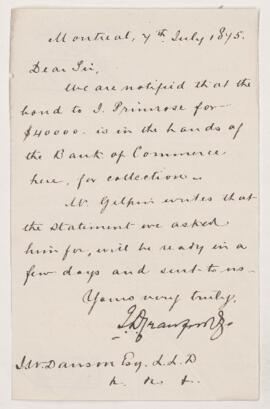 Montreal, 7th July 1875.
Dear Sir,
We are notified that the
bond to I. Primrose for
$40000. is in the hands of
the Bank of Commerce
here, for collection.
Mr. Gilpin writes that
the statement we asked
him for, will be ready in a
few days and sent to us.
Yours very truly,
J. D. Crawford &
J. W. Dawson Esq. L.L.D